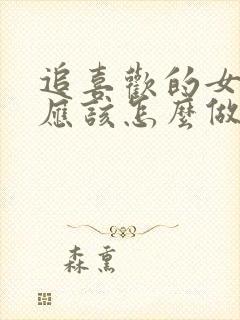 追喜歡的女
應該怎麼做
森熏